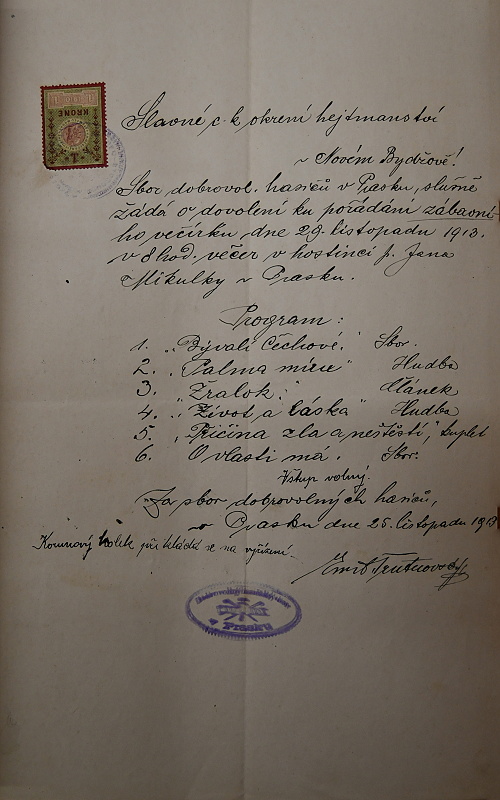 KRONE
1
Slavné c. k. okresní hejtmanství
v Novém Bydžově!
Sbor dobrovol. hasičů v Prasku, slušně
žádá o dovolení ku pořádání zábavní
ho večírku dne 29. listopadu 1913.
v 8 hod. večer v hostinci p. Jana
Mikulky v Prasku.
Program:
1. „Bývali Čechové." Sbor.
2. „Palma míru" Hudba
3. „Žralok." Článek
4. „Život a láska" Hudba
5. „Příčina zla a neštěstí," kuplet
6. O vlasti má. Sbor.
Vstup volný.
Za sbor dobrovolných hasičů,
v Prasku dne 25. listopadu 1913
Korunový kolek přikládá se na vyřízení.
Emil
Prasku